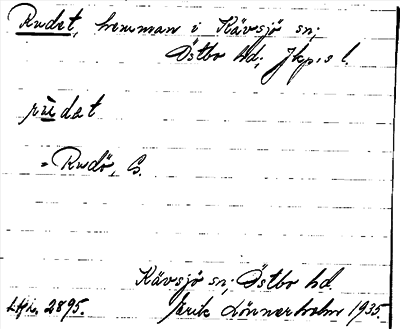 Rudet, hemman i Kävsjö sn;
Östbo hd; Jkp:s l.
rùdat
= Rudö, G.
Kävsjö sn; Östbo hd.
2895. Jerik Lönnerholm 1935.